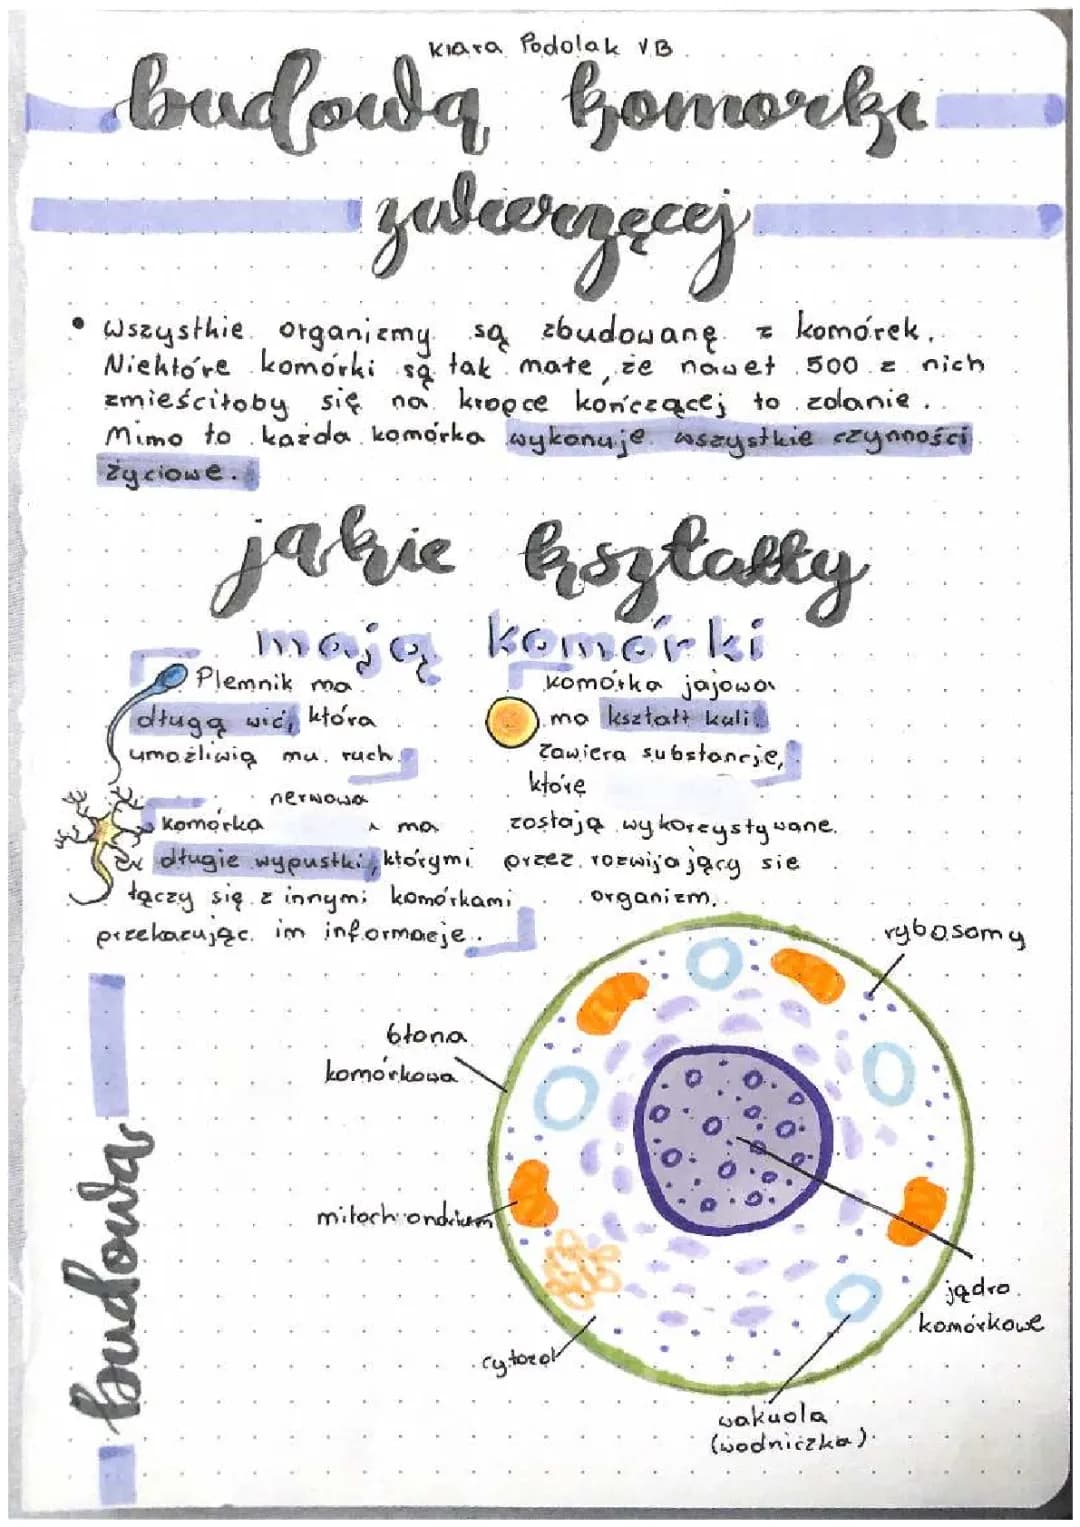 Kiara Podolak VB
budową komorki
zwierzęcej
• wszysthie organizmy są zbudowanę z komórek.
Niektóre komórki są tak małe, że nawet 500 z nich
zmieściłoby się na kropce kończącej to zdanie.
Mimo to każda komórka wykonuje wszystkie czynności
życiowe.
jakie kształty
mają komórki
Plemnik ma
długą wić, która
umożliwią mu ruch.
komórka jajowa
ma kształt kuli
Zawiera substancje,
którę
zostają wykorzystywane
przez rozwijający sie
organizm.
nerwowa
komórka ^ ma
długie wypustki, którymi
łączy się z innymi komórkami
przekazując im informacje.
budowa
rybosomy
błona
komórkowa
mitochondrium
cytozol
jądro
komórkowe
wakuola
(wodniczka)